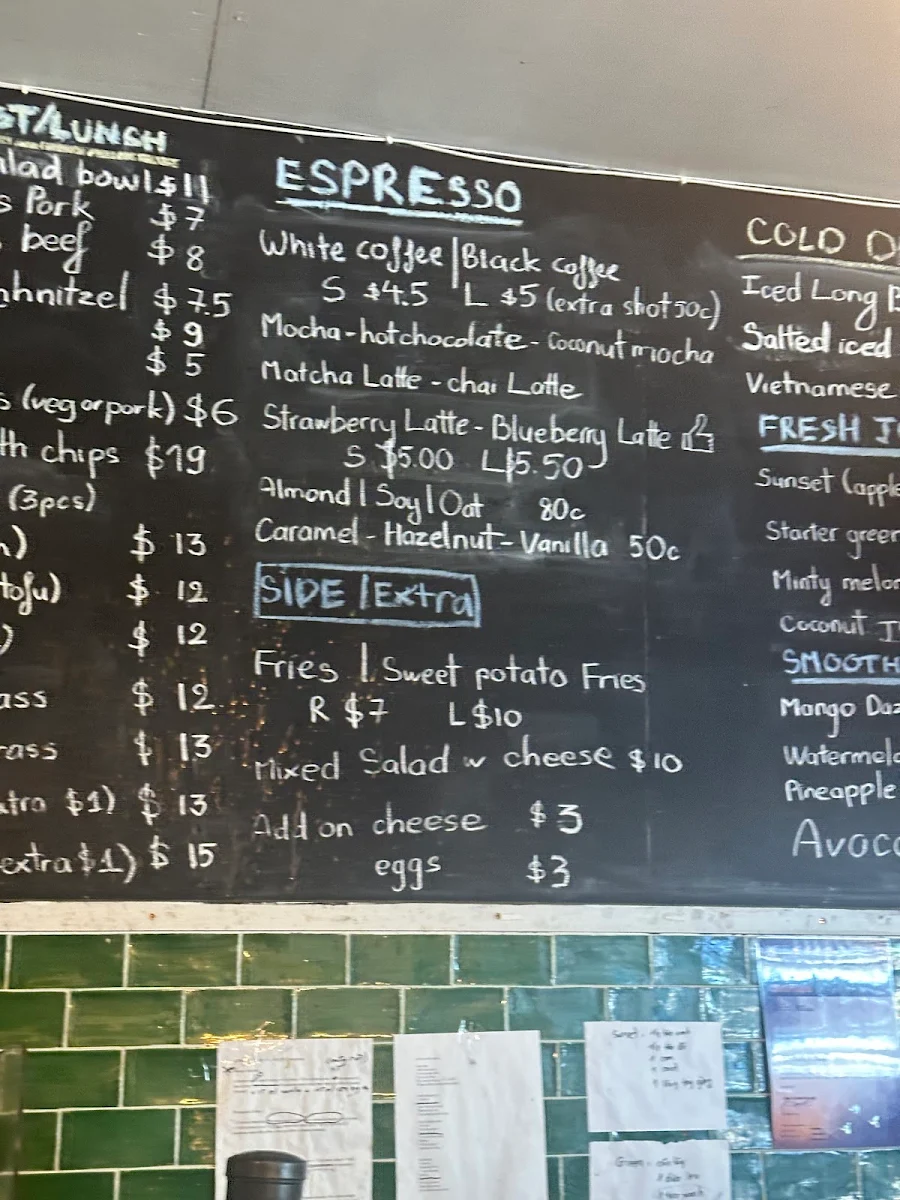 ST/LUNCH
alad bowl $11
s Pork $7
beef $8
hnitzel $7.5
$9
$5
s (veg or pork) $6
th chips $19
(3pcs)
) $13
tofu) $12
) $12
ass $12
rass $13
xtra $1) $13
extra $1) $15
ESPRESSO
White coffee | Black coffee
S $4.5 L $5 (extra shot 50c)
Mocha - hot chocolate - coconut mocha
Matcha Latte - chai Latte
Strawberry Latte - Blueberry Latte
S $5.00 L $5.50
Almond | Soy | Oat 80c
Caramel - Hazelnut - Vanilla 50c
SIDE / Extra
Fries | Sweet potato Fries
R $7 L $10
Mixed Salad w cheese $10
Add on cheese $3
eggs $3
COLD D
Iced Long B
Salted iced
Vietnamese
FRESH J
Sunset (apple
Starter green
Minty melon
Coconut J
SMOOTH
Mango Daz
Watermelo
Pineapple
Avoca